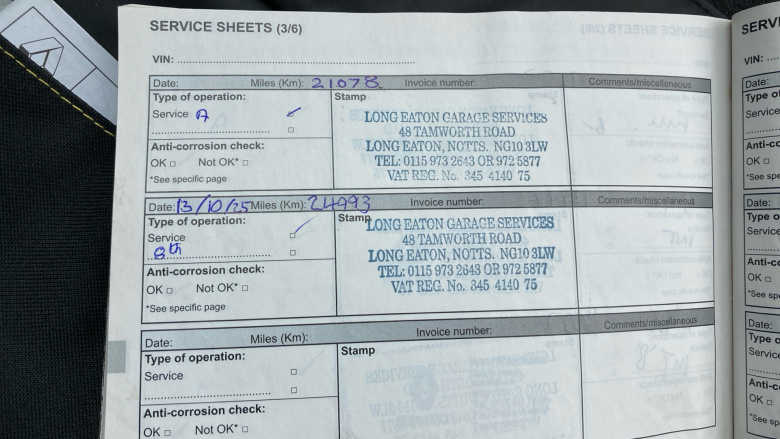 SERVICE SHEETS (3/6)
VIN:
Date: Miles (Km): 21078 Invoice number: Comments/miscellaneous
Type of operation: Stamp
Service A
LONG EATON GARAGE SERVICES
48 TAMWORTH ROAD
LONG EATON, NOTTS. NG10 3LW
TEL: 0115 973 2643 OR 972 5877
VAT REG. No. 345 4140 75
Anti-corrosion check:
OK □ Not OK* □
*See specific page
Date: 13/10/25 Miles (Km): 24993 Invoice number: Comments/miscellaneous
Type of operation: Stamp
Service
8th
LONG EATON GARAGE SERVICES
48 TAMWORTH ROAD
LONG EATON, NOTTS. NG10 3LW
TEL: 0115 973 2643 OR 972 5877
VAT REG. No. 345 4140 75
Anti-corrosion check:
OK □ Not OK* □
*See specific page
Date: Miles (Km): Invoice number: Comments/miscellaneous
Type of operation: Stamp
Service
Anti-corrosion check:
OK □ Not OK* □
VIN:
Date:
Service
*See spe
Date:
Service
*See spe
Date:
Service